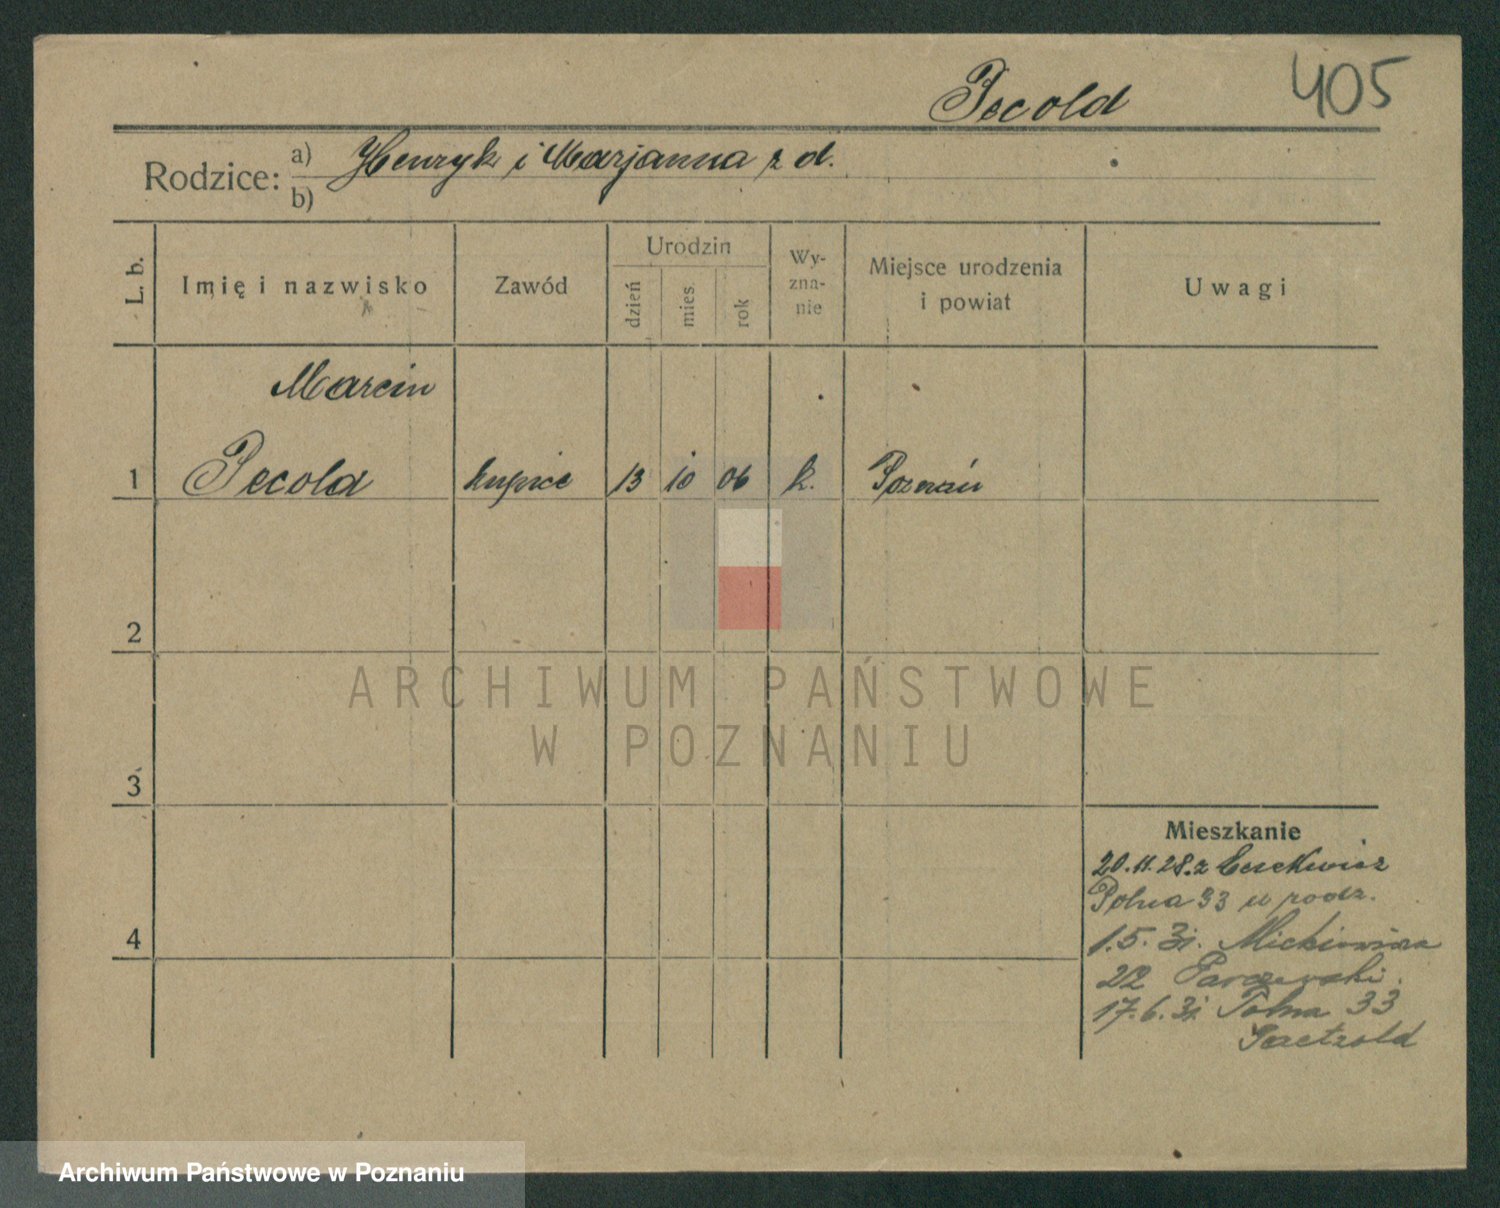 Pecold 405
Rodzice: a) Henryk i Marjanna z d.
b)
L. b. Imię i nazwisko Zawód Urodzin dzień mies. rok Wy-zna-nie Miejsce urodzenia i powiat Uwagi
Marcin
1 Pecold kupiec 13 10 06 k. Poznań
2
ARCHIWUM PAŃSTWOWE
W POZNANIU
3
Mieszkanie
20.11.28. z
Polna 33 u rodz.
4
1.5.31. Mickiewicza
22 Parczewski.
17.6.31. Polna 33
Paetzold
Archiwum Państwowe w Poznaniu